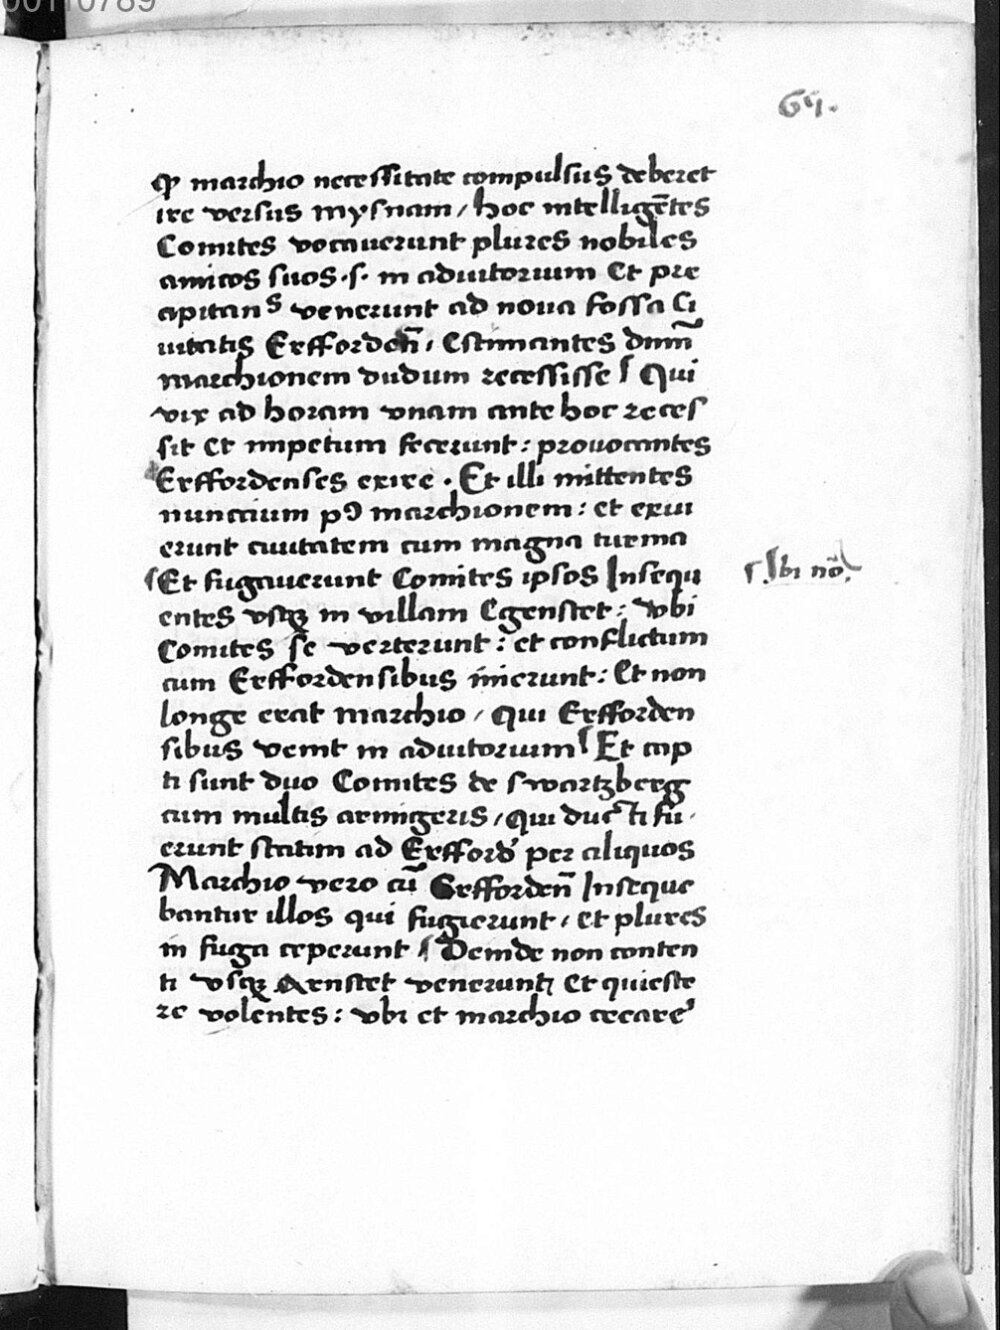 00110789
65.
ꝙ marchio necessitate compulsus deberet
ire versus mysnam / hoc intelligētes
Comites vocauerunt plures nobiles
amicos suos .s. in adiutorium Et pre
capitan⁹ venerunt ad noua fossa Ci
uitatis Erffordeñ / Estimantes dnm̄
marchionem dudum recessisse Qui
vix ad horam vnam ante hoc reces
sit Et impetum fecerunt : prouocantes
Erffordenses exire . Et illi mittentes
nunccium pꝰ marchionem : et exiui
erunt ciuitatem cum magna turma
Et fugauerunt Comites ipsos Insequ
entes vsqꝫ in villam Egenstet : vbi
Comites se verterunt : et conflictum
cum Erffordensibus inierunt : Et non
longe erat marchio / Qui Erfforden
sibus venit in adiutorium Et cap
ti sunt duo Comites de swartzberg
cum multis armigeris / Qui ducti fu
erunt statim ad Erfford' per aliquos
Marchio vero cū Erffordeñ Inseque
bantur illos qui fugierunt / et plures
in fuga ceperunt Deinde non conten
ti vsqꝫ Arnstet venerunt Et quiesce
re volentes : vbi et marchio